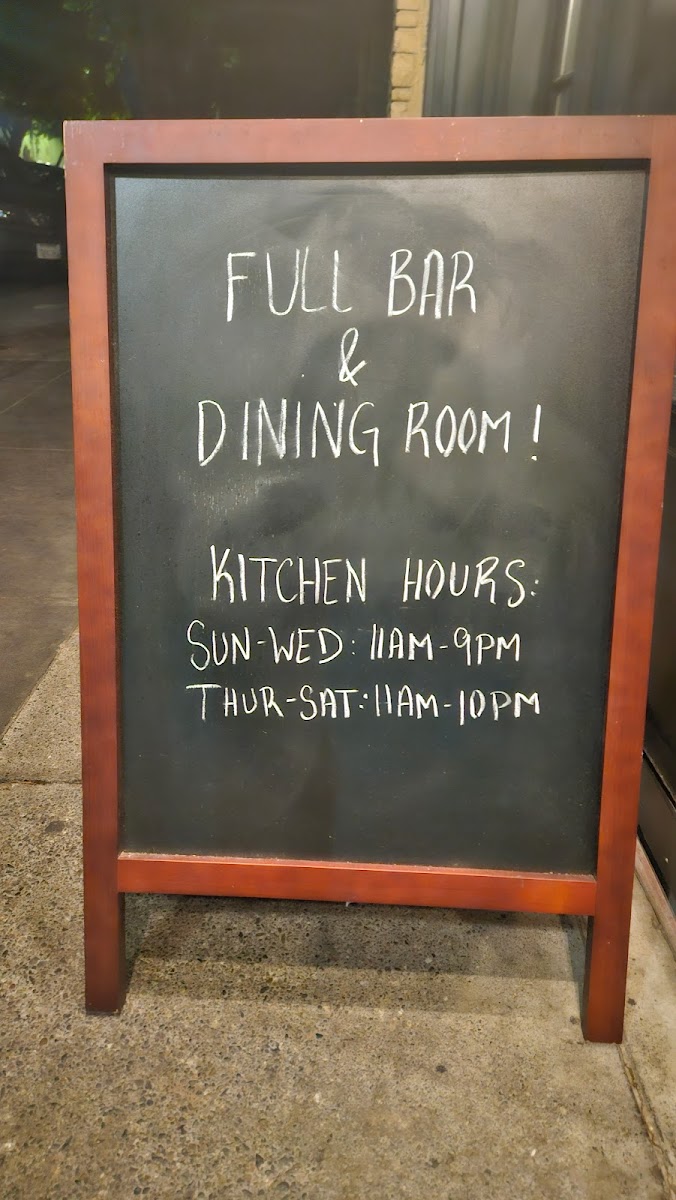 FULL BAR
&
DINING ROOM!
KITCHEN HOURS:
SUN-WED: 11AM-9PM
THUR-SAT: 11AM-10PM